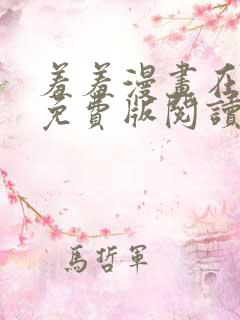 羞羞漫畫在
免費版閱讀
馬哲軍